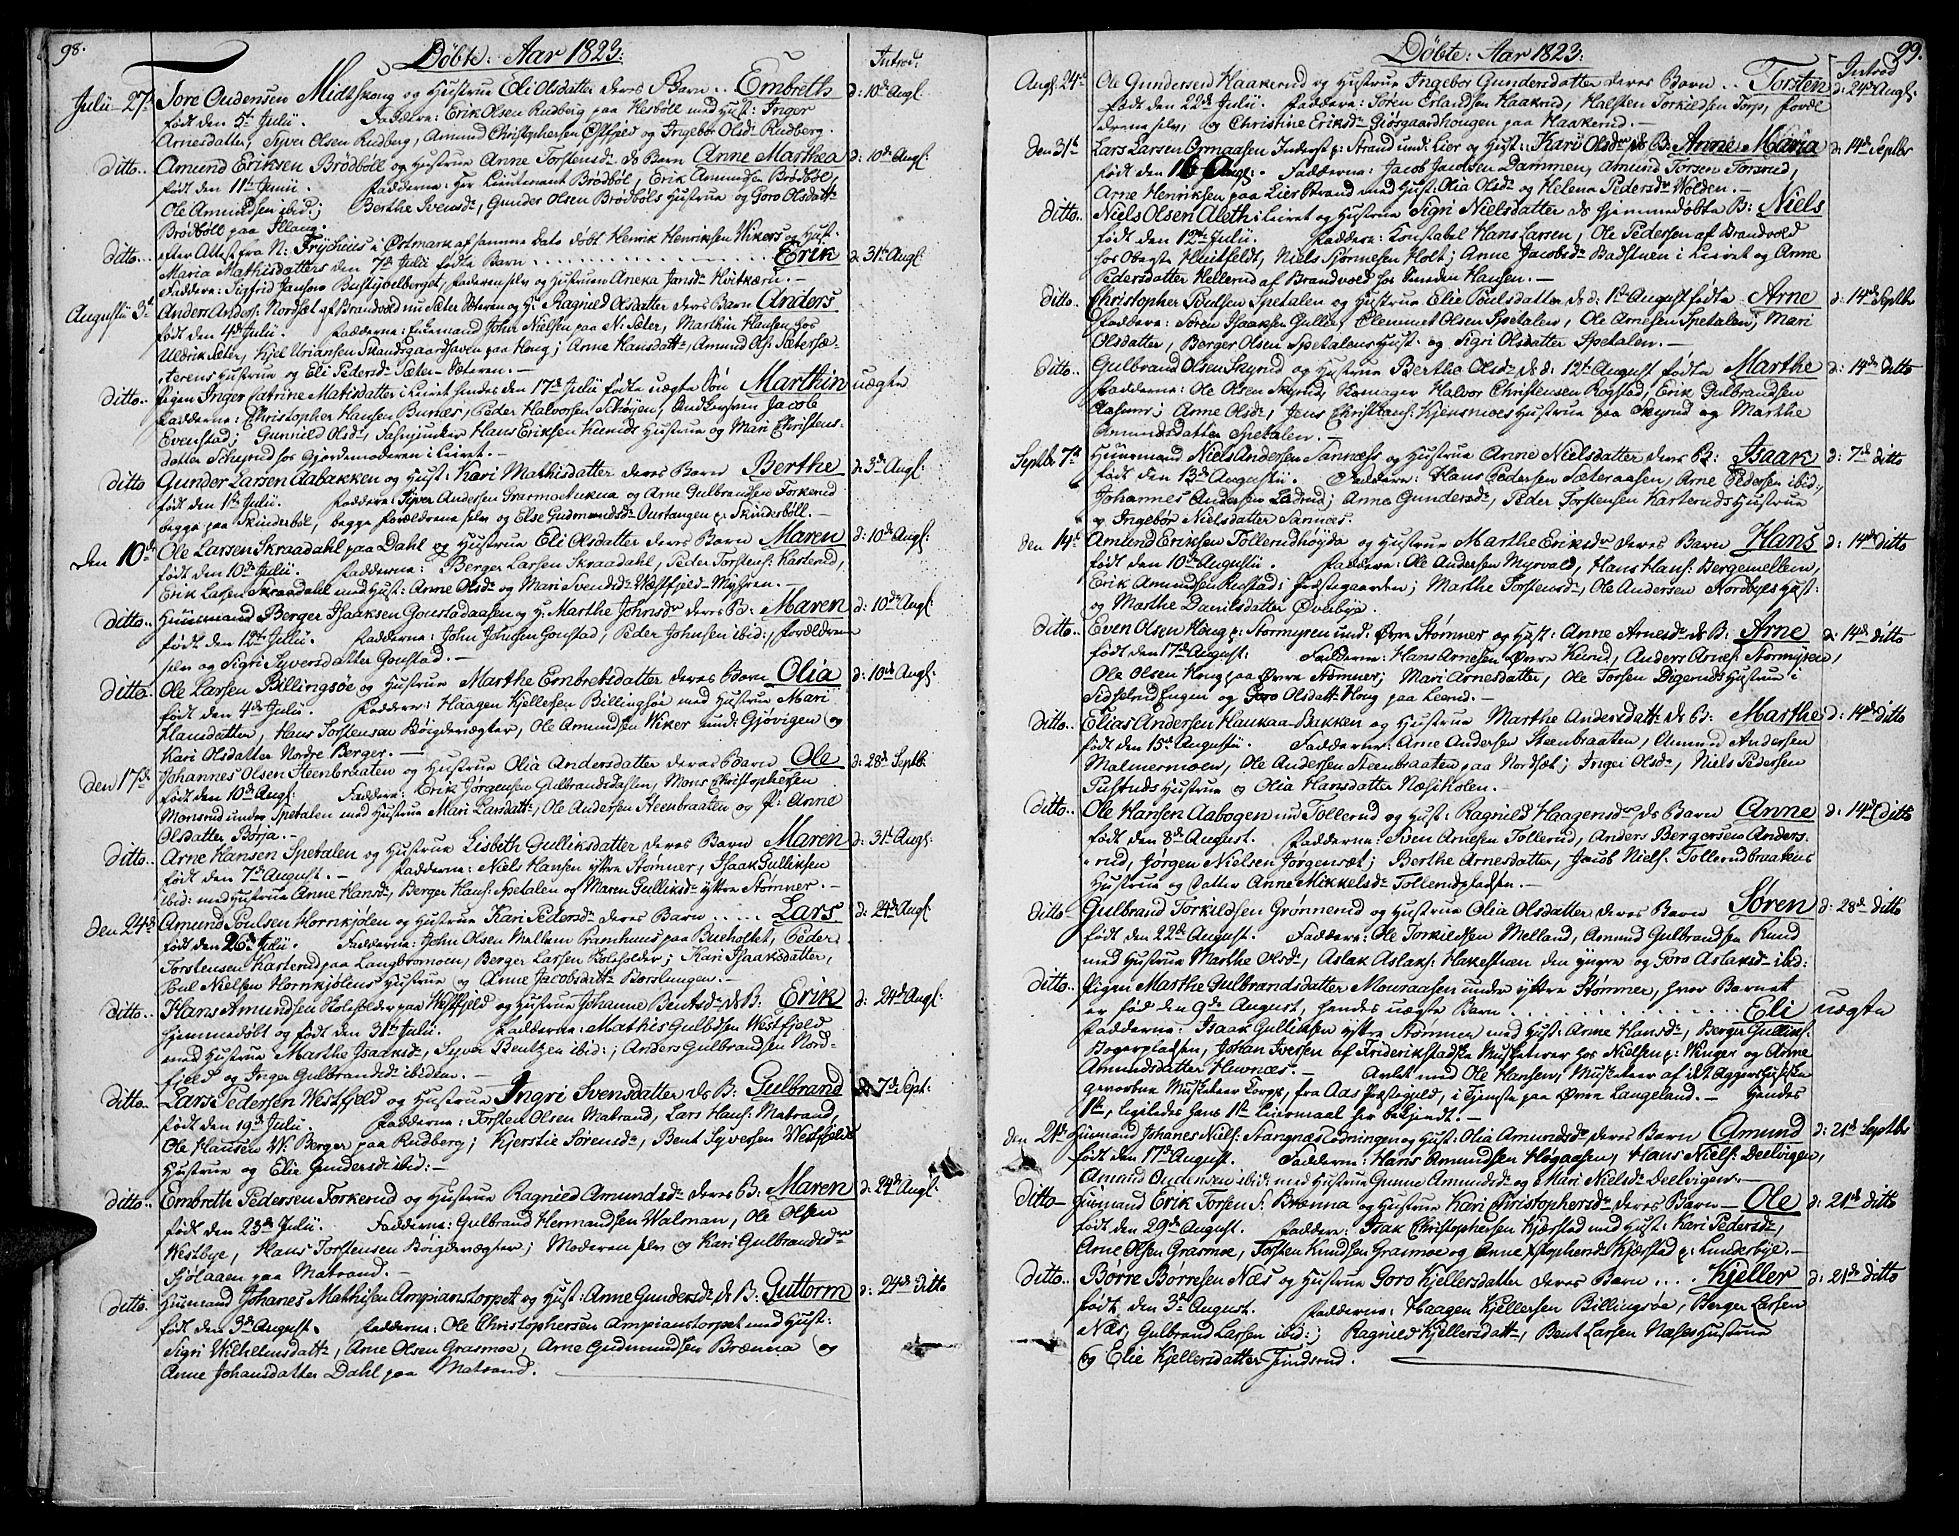 98.
Døbte: Aar 1823:
Introd:
Julii 27de Tore Oudensen Midtskong og Hustrue Eli Olsdatter deres Barn .. Embreth d: 10de Augl.
født den 5te Julii. Faddere: Erik Olsen Rudberg paa Kesböl med Hust: Inger
Arnesdatter, Syver Olsen Rudberg, Amund Christophersen Östfjeld og Ingebör Olsdr Rudberg.
ditto.. Amund Eriksen Brødbøll og Hustrue Anne Torstensdr ds Barn Anne Marthea d: 10de Augl:
født den 11te Junii. Fadderne: Hr Lieutenant Brødbøl, Erik Amundsen Brødbøl,
Ole Amundsen ibid:; Berthe Svensdr, Gunder Olsen Brödböls Hustrue og Goro Olsdattr
Brödböll paa
efter Attest fra N: i Østmark af samme dato døbt Henrik Henriksen Wikers og Hust.
ditto.. Maria Mathisdatters den 7de Julii fødte Barn . . . . . . . . . . Erik d: 31te Augl:
Faddere: Sigfrid Jansen Faderen selv og Hustruen Aneka Jansdr
Augustii 3d Anders Andersen Nordset af Brandvold nu Sæter Sæteren og H: Ragnild Olsdatter deres Barn Anders
født den 4de Julii. Fadderne: John Nielsen paa N: Sæter, Marthin Hansen hos
Uldrik Sæter, Kjel Uriansen Skandsgaardhaven paa Kong; Anne Hansdattr, Amund Ols: Sætersæ-
terens Hustrue og Eli Pedersdr Sæter-Sæteren. —
ditto.. Pigen Inger Catrine Matisdatter i Leiret hendes den 17de Julii fødte uægte Søn Marthin uægte
Fadderne: Christophher Hansen Burnæs, Peder Halvorsen Schøyen, Jacob
Evenstad; Gunnild Olsdr, Fahnjunker Hans Eriksen Kuruds Hustrue og Mari Christens-
datter Schyrud hos Gjordemoderen i Leiret. —
ditto Gunder Larsen Aabakken og Hust: Kari Mathisdatter deres Barn Berthe d: 3de Augl:
født den 1te Julii. Fadderne: Syver Andersen og Arne Gulbrandsen Forkerud
begge paa Skinderböl, begge Forældrene selv og Else Gudmundsdr Ourstangen p: Skinderböll. —
den 10de Ole Larsen Skraadahl paa Dahl og Hustrue Eli Olsdatter deres Barn Maren d: 10de Augl:
født den 10de Julii. Fadderne: Berger Larsen Skraadahl, Peder Torstens: Karterud,
Erik Larsen Skraadahl med Hust: Anne Olsdr og Mari Svendsdr Westfjeld-Myhren. —
ditto.. Huusmand Berger Isaaksen Goustadaasen og H: Marthe Johnsdr deres B: Maren d: 10de Augl:
født den 12te Julii. Fadderne: John Johnsen Goustad, Peder Johnsen ibid:, Forældrene
selv og Sigri Syversdatter Goustad: —
ditto. Ole Larsen Billingsøe og Hustrue Marthe Embretsdatter deres Barn Olia d: 10de Augl:
født den 4de Julii. Faddere: Haagen Kjellesen Billingsøe med Hustrue Mari
Hansdatter, Hans Torstensen Böigdevægter, Ole Amundsen Wiker und: Gjövigen og
Kari Olsdatter Nordre Berger. —
den 17de Johannes Olsen Steenbraaten og Hustrue Olia Andersdatter deres Barn Ole d: 28de Septb:
født den 10de Augl: Faddere: Erik Jørgensen Gulbrandsdalen, Mons Christophersen
Monsrud under Spetalen med Hustrue Mari Larsdattr, Ole Andersen Steenbraaten og P: Anne
Olsdatter Börja. —
ditto.. Arne Hansen Spetalen og Hustrue Lisbeth Gulliksdatter deres Barn Maren d: 31te Augl:
født den 7de August. — Fadderne: Niels Hansen yttre Stømner, Isaak Gulliksen
ibid: med Hustrue Anne Hansdr, Berger Hans: Spetalen og Maren Gulliksdr yttre Stømner. —
den 24de Amund Poulsen Hornkjølen og Hustrue Kari Pedersdr deres Barn ..... Lars d: 24de Augl:
født den 26de Julii. Fadderne: John Olsen Mellem Pramhuus paa Bueholtet, Peder
Torstensen Karterud paa Langbromoen, Berger Larsen Kolefolder; Kari Isaaksdatter,
Poul Nielsen Hornkjølens Hustrue og Anne Jacobsdattr Korslungen. —
ditto.. Hans Amundsen Kolefolder paa Westfjeld og Hustrue Johanne Bentsdr, ds B: Erik d: 24de Augl:
Hjemmedøbt og født den 31te Julii. Fadderne: Mathis Gulbdsen Westfjeld
med Hustrue Marthe Isaaksdr, Syver Bentzen ibid:; Anders Gulbrandsen Nord-
fjeld og Inger Gulbrandsdr ibidem. —
ditto.. Lars Pedersen Westfjeld og Hustrue Ingri Svensdatter ds B: Gulbrand d: 7de Sept:
født den 19de Julii. Fadderne: Torsten Olsen Matrand, Lars Hans: Matrand,
Ole Hansen W: Berger paa Rudberg; Kjerstie Sörensdr, Bent Syversen Westfjelds
Hustrue og Elie Gundersdr ibid: —
ditto.. Embreth Pedersen Torkerud og Hustrue Ragnild Amundsdr deres B: Maren d: 24de Augl:
født den 23de Julii. Faddere: Gulbrand Hermandsen Walman, Ole Olsen
Westbye, Hans Torstensen Böigdevægter; Moderen selv og Kari Gulbrandsdr
Sjölaaen paa Matrand. —
ditto. Huusmand Johanes Mathisen Ampianstorpet og Hust: Anne Gundersdr ds B: Guttorm d: 24de ditto
født den 3de August. Fadderne: Ole Christophersen Ampianstorpet med Hust:
Sigri Wilhelmsdattr, Arne Olsen Grasmoe, Arne Gudmundsen Brænna og
Anne Johansdatter Dahl paa Matrand.
99.
Døbte: Aar 1823:
Introd
Augl: 24de Ole Gundersen Haakerud og Hustrue Ingebor Gundersdatter deres Barn .. Torsten d: 24de Augl:
født den 22de Julii. Faddere: Sören Erlandsen Haakrud, Halsten Torkildsen Torp, Foræl
drene selv, og Christine Eriksdr Giörsgaardhougen paa Haakerud. —
den 31te Lars Larsen Ormaasen Inderst p: Strand und: Lier og Hust: Kari Olsdr ds B: Anne Maria d: 14de Septbr
født den 16 Augl:. Fadderne: Jacob Jacobsen Dammen, Amund Torsen Torsrud,
Arne Henriksen paa Lier Strand med Hust: Olia Olsdr og Helena Pedersdr Wolden. —
ditto.. Niels Olsen Aleth i Leiret og Hustrue Sigri Nielsdatter ds hjemmedøbte B: Niels
født den 12te Julii. Faddere: Konstabel Hans Larsen, Ole Pedersen af Brandvold
hos Obgste Huitfeldt, Niels Björnesen Holt; Anne Jacobsdr Badstuen i Leiret og Anne
Pedersdatter Hellerud af Brandvold hos Hansen. —
ditto.. Christopher Poulsen Spetalen og Hustrue Elie Poulsdatter ds d: 1te August fødte Arne d: 14de Septbr
Faddere: Sören Isaaksen Gullie, Clemmet Olsen Spetalen, Ole Arnesen Spetalen; Mari
Olsdatter, Berger Olsen Spetalens Hust: og Sigri Olsdatter Spetalen. —
ditto.. Gulbrand Olsen Skyrud og Hustrue Berthe Olsdr ds d: 12te August fødte Marthe d: 14de ditto
Fadderne: Ole Olsen Skyrud, Remager Halvor Christensen Rogstad, Erik Gulbrandsen
Aasum; Anne Olsdr, Jens Christians: Kjensmoes Hustrue paa Skyrud og Marthe
Amundsdatter Spetalen. —
Septbr 7de Huusmand Niels Andersen Sannæss og Hustrue Anne Nielsdatter deres B: Isaak d: 7de ditto
født den 13de Augustii. Faddere: Hans Pedersen Sæteraasen, Arne Pedersen ibid:,
Johannes Andersen Ladrud; Anne Gundersdr, Peder Torstensen Karteruds Hustrue
og Ingebör Nielsdatter Sannæs.
den 14de Amund Eriksen Tollerudhøyda og Hustrue Marthe Eriksdr deres Barn Hans d: 14de ditto
født den 10de Augustii. Faddere: Ole Andersen Myrvold, Hans Hans: Bergemellem,
Erik Amundsen Rustad i Præstegaarden; Marthe Torstensdr, Ole Andersen Nordbyes Hust:
og Marthe Danilsdatter Överbye.
ditto.. Even Olsen Kong p: Stormyren und: Övre Stömner og Hust: Anne Arnesdr ds B: Arne d: 14de ditto
født den 17de August: Fadderne: Hans Arnesen Övre Kurud, Anders Arnes: Stormyren,
Ole Olsen Kong paa Övre Stømner; Mari Arnesdatter, Ole Torsen Digeruds Hustrue i
Sidselrud Engen og Goro Olsdattr Kong paa Leerud. —
ditto.. Elias Andersen Haukaa-Bakken og Hustrue Marthe Andersdattr ds B: Marthe d: 14de ditto
født den 15de Augustii. Fadderne: Arne Andersen Steenbraaten, Amund Andersen
Malmermoen, Ole Andersen Steenbraaten paa Nordset; Ingri Olsdr, Niels Pedersen
Pustruds Hustrue og Olia Hansdatter Næsikolen. —
ditto.. Ole Hansen Aabogen nu Tollerud og Hust: Ragnild Haagensdr ds Barn Anne d: 14de ditto
født den 8de August. Faddere: Sven Arnesen Tollerud, Anders Bergersen Anders-
rud, Jørgen Nielsen Jørgensæt; Berthe Arnesdatter, Jacob Niels: Tollerudbraatens
Hustrue og Datter Anne Mikkelsdr Tollerudpladsen. —
ditto. Gulbrand Torkildsen Grønnerud og Hustrue Olia Olsdatter deres Barn Søren d: 28de ditto
født den 22de August. Faddere: Ole Torkildsen Melland, Amund Gulbrandsen Rund
med Hustrue Marthe Olsdr, Aslak Aslaks: Hakestræn den yngre og Goro Aslaksdr ibid:
ditto. Pigen Marthe Gulbrandsdatter Mouraasen under yttre Stømner, hvor Barnet
er fød den 9de August, hendes uægte Barn . . . . . . . . . . Eli uægte
Fadderne: Isaak Gulliksen yttre Stømner med Hust: Anne Hansdr, Berger Gulliks:
Bogerpladsen, Johan Iversen af Friderikstadske Musketeer hos Nielsen p: Winger og Anne
Amundsdatter Huvnæs. — Avlet med Ole Hansen, Musketeer af det Aggershusiske
gevorbne Musketeer Corps, fra Aas Præstegield, i Tjenste paa Övre Langeland. — Hendes
1te, ligeledes hans 1te Leiermaal for bekjendt. —
den 21de Huusmand Johanes Niels: Stangnæs og Hust: Olia Amundsdr deres Barn Amund d: 21de Septbr
født den 17de August. Fadderne: Hans Amundsen Høgaasen, Hans Niels: Deelvigen,
Amund Oudensen ibid: med Hustrue Gunne Amundsdr og Mari Nielsdr Deelvigen. —
ditto — Huusmand Erik Torsen S. Brænna og Hustrue Kari Christophersdr deres Barn — Ole d: 21de ditto
født den 29de August. Faddere: Isak Christophersen Kjærstad med Hust: Kari Pedersdr,
Arne Olsen Grasmoe, Torsten Knudsen Grasmoe og Anne Kjærstad p: Lunderbye. —
ditto.. Børre Børresen Næs og Hustrue Goro Kjellersdatter deres Barn .... Kjeller d: 21de ditto
født den 3de August. Fadderne: Haagen Kjellersen Billingsøe, Berger Larsen
Næs, Gulbrand Larsen ibid:; Ragnild Kjellersdattr, Bent Larsen Næses Hustrue
og Elie Kjellersdatter Findsrud.